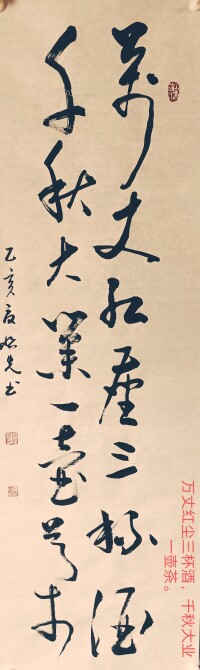 萬丈红塵三杯酒
千秋大業一壺茶
乙亥夏先书
万丈红尘三杯酒，千秋大业
一壶茶。